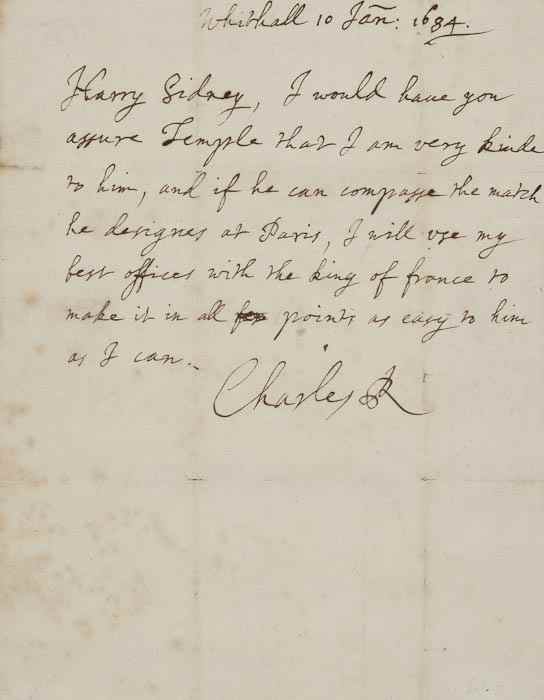 Whithall 10 Jan: 1684.
Harry Sidney, I would have you
assure Temple that I am very kinde
to him, and if he can compasse the match
he designes at Paris, I will use my
best offices with the king of france to
make it in all points as easy to him
as I can.
Charles R